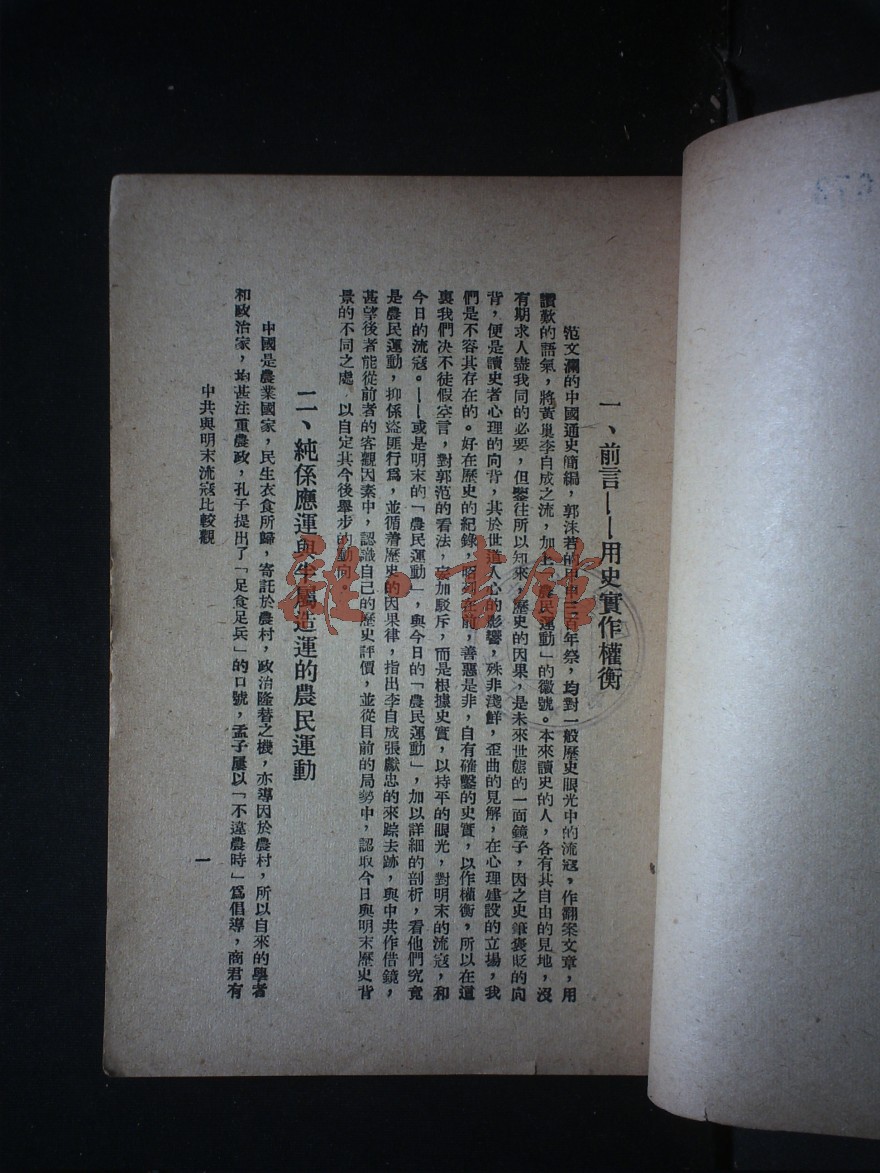 一、前言——用史實作權衡
范文瀾的中國通史簡編，郭沫若的甲申三百年祭，均對一般歷史眼光中的流寇，作翻案文章，用
讚歎的語氣，將黃巢李自成之流，加上「農民運動」的徽號。本來讀史的人，各有其自由的見地，沒
有期求人盡我同的必要，但鑒往所以知來，歷史的因果，是未來世態的一面鏡子，因之史筆褒貶的向
背，便是讀史者心理的向背，其於世道人心的影響，殊非淺鮮，歪曲的見解，在心理建設的立場，我
們是不容其存在的。好在歷史的紀錄，昭列在前，善惡是非，自有確鑿的史實，以作權衡，所以在這
裏我們決不徒假空言，對郭范的看法，妄加駁斥，而是根據史實，以持平的眼光，對明末的流寇，和
今日的流寇。——或是明末的「農民運動」，與今日的「農民運動」，加以詳細的剖析，看他們究竟
是農民運動，抑係盜匪行為，並循着歷史的因果律，指出李自成張獻忠的來踪去跡，與中共作借鏡，
甚望後者能從前者的客觀因素中，認識自己的歷史評價，並從目前的局勢中，認取今日與明末歷史背
景的不同之處，以自定其今後舉步的動向。
二、純係應運與生屬造運的農民運動
中國是農業國家，民生衣食所歸，寄託於農村，政治隆替之機，亦導因於農村，所以自來的學者
和政治家，均甚注重農政，孔子提出了「足食足兵」的口號，孟子屢以「不違農時」為倡導，商君有
中共與明末流寇比較觀
一
雜·書館